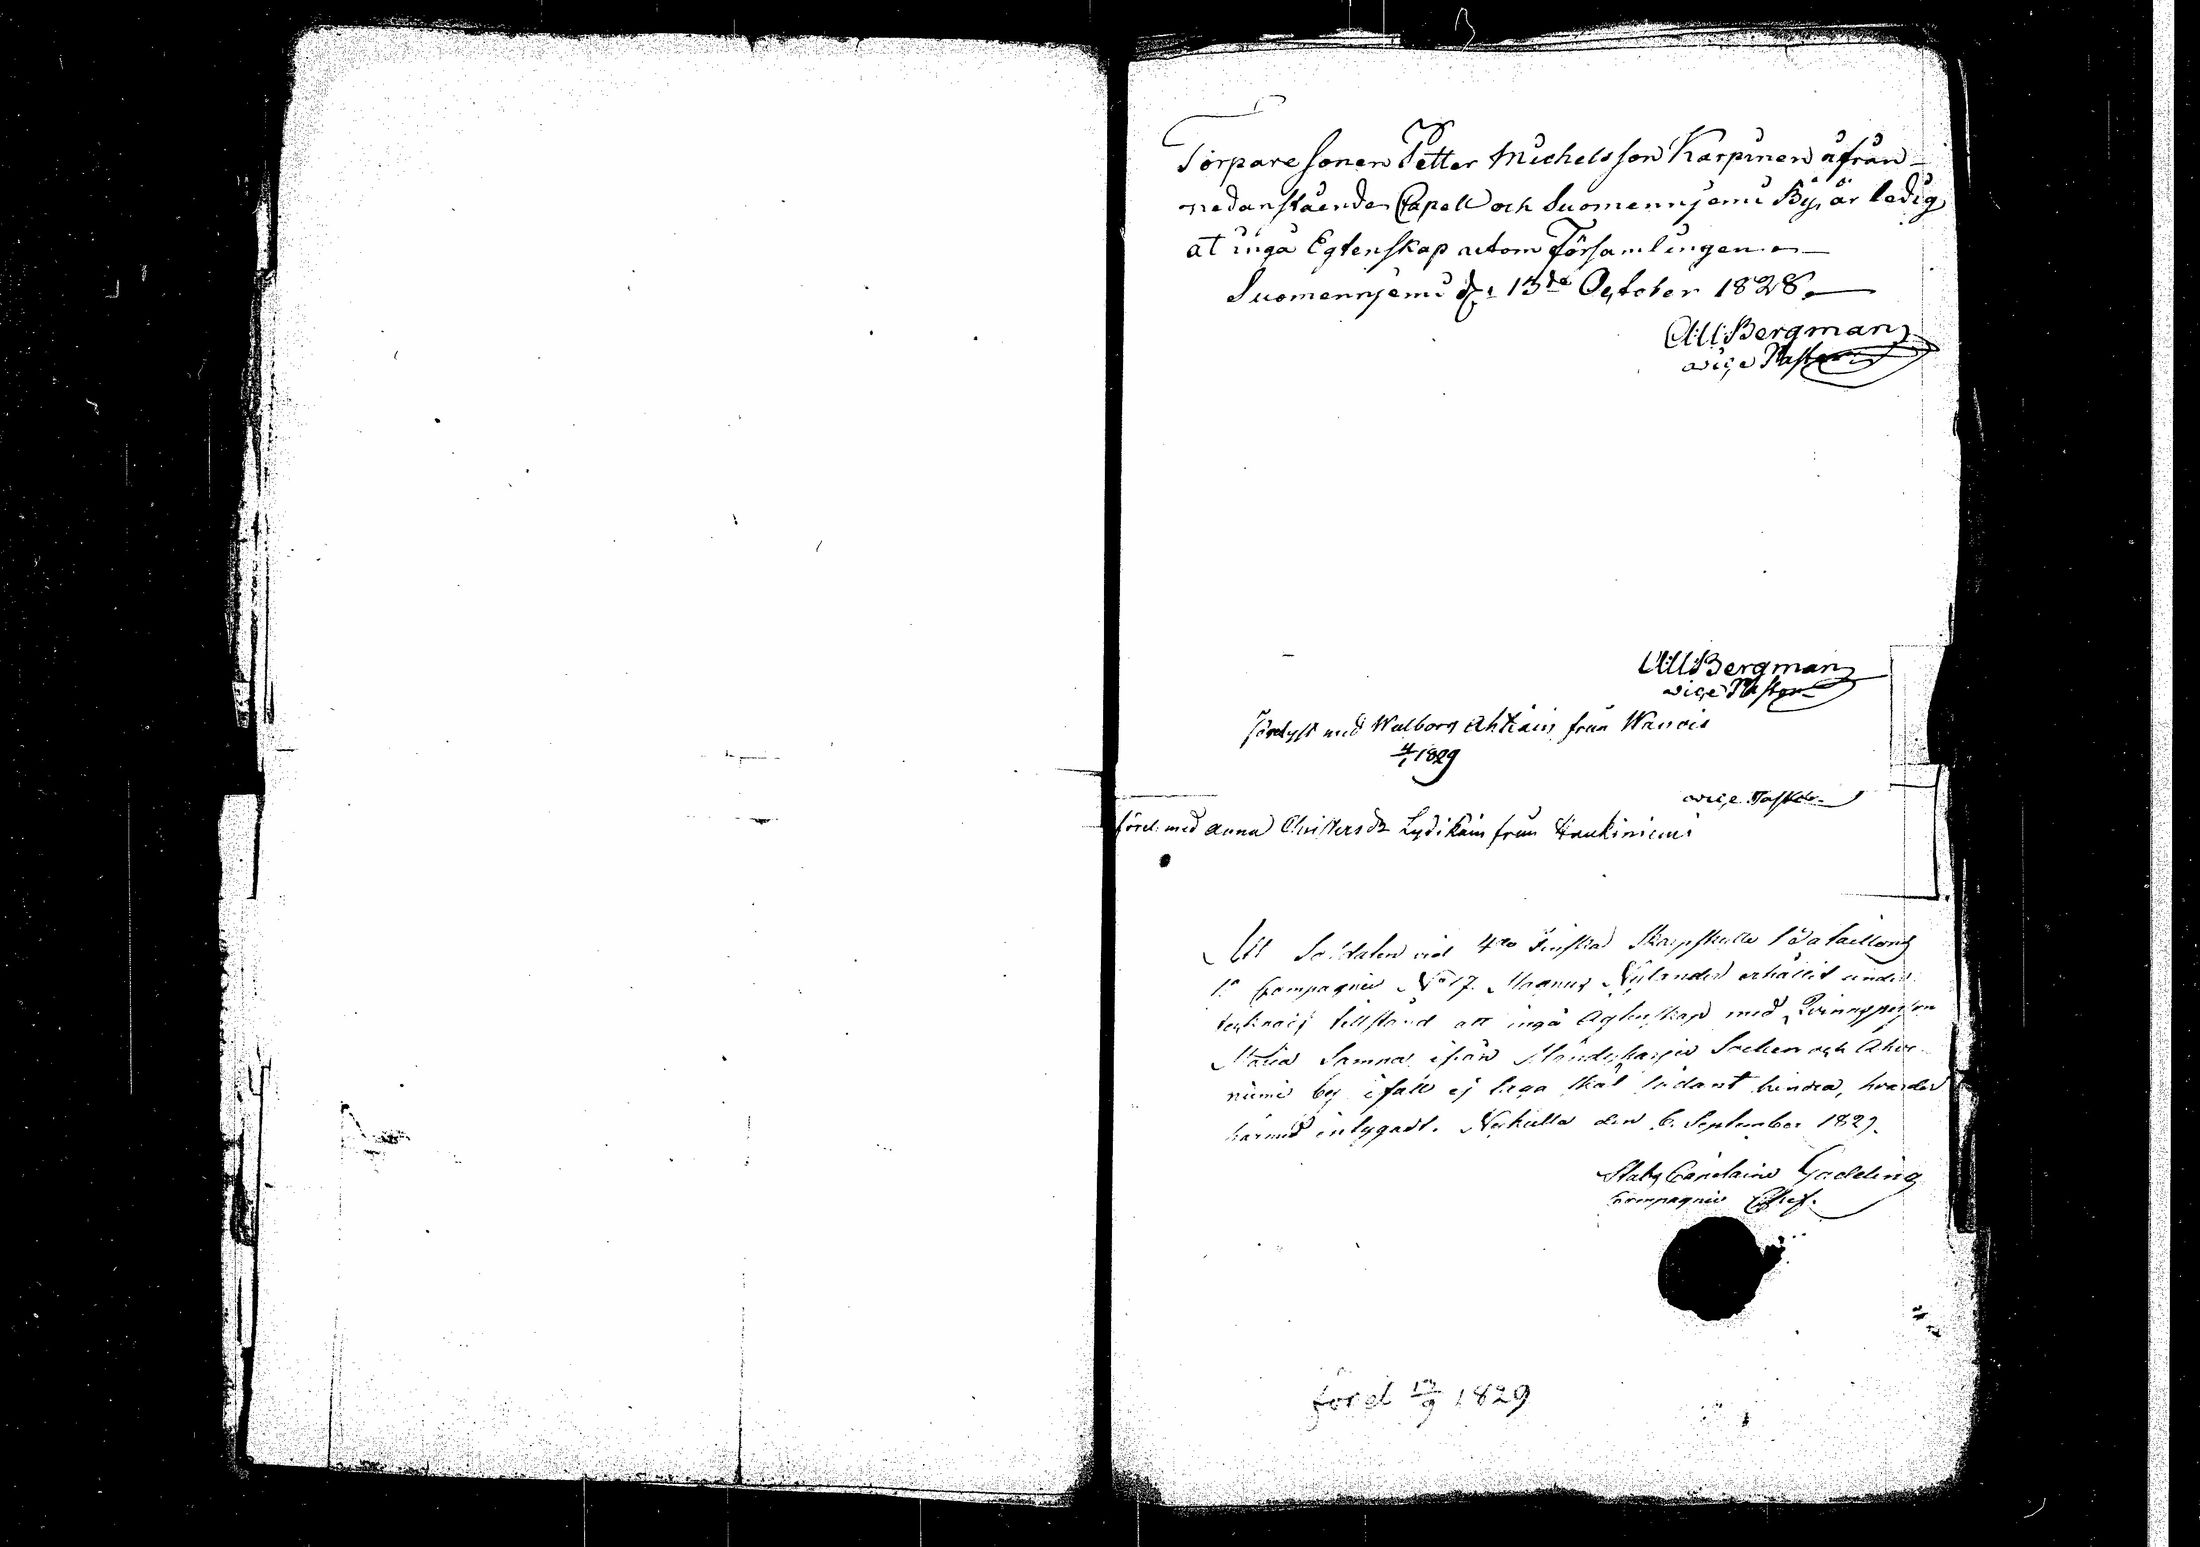 Torpare sonen Petter Michelsson Karpinen ifrån
nedanstående Capell och Suomennjemi By, är ledig
at ingå Egtenskap utom Församlingen
Suomennjemi d. 13de October 1828.
Bergman
vice Pastor
Bergman
vice Pastor
förelyst med Walborg Ahtiain från
4/1 1829
vice Pastor
förel. med Anna Christersdr Lydikäin från Haukiniemi
Att Soldaten vid 4de Finska Skarpskytte Bataillons
1a Compagnie No 17. Magnus Nylander erhållit under-
tecknads tillstånd att ingå Ägtenskap med Qvinnsperson
Maria Samna ifrån Mändyharju Socken och Ahve-
niemi by ifall ej laga skäl sådant hindra, hvarder
härmed intygadt. Nykulla den 6. September 1829.
Stabs Capitaine Gadding
Compagnie Chef.
förel 13/9 1829